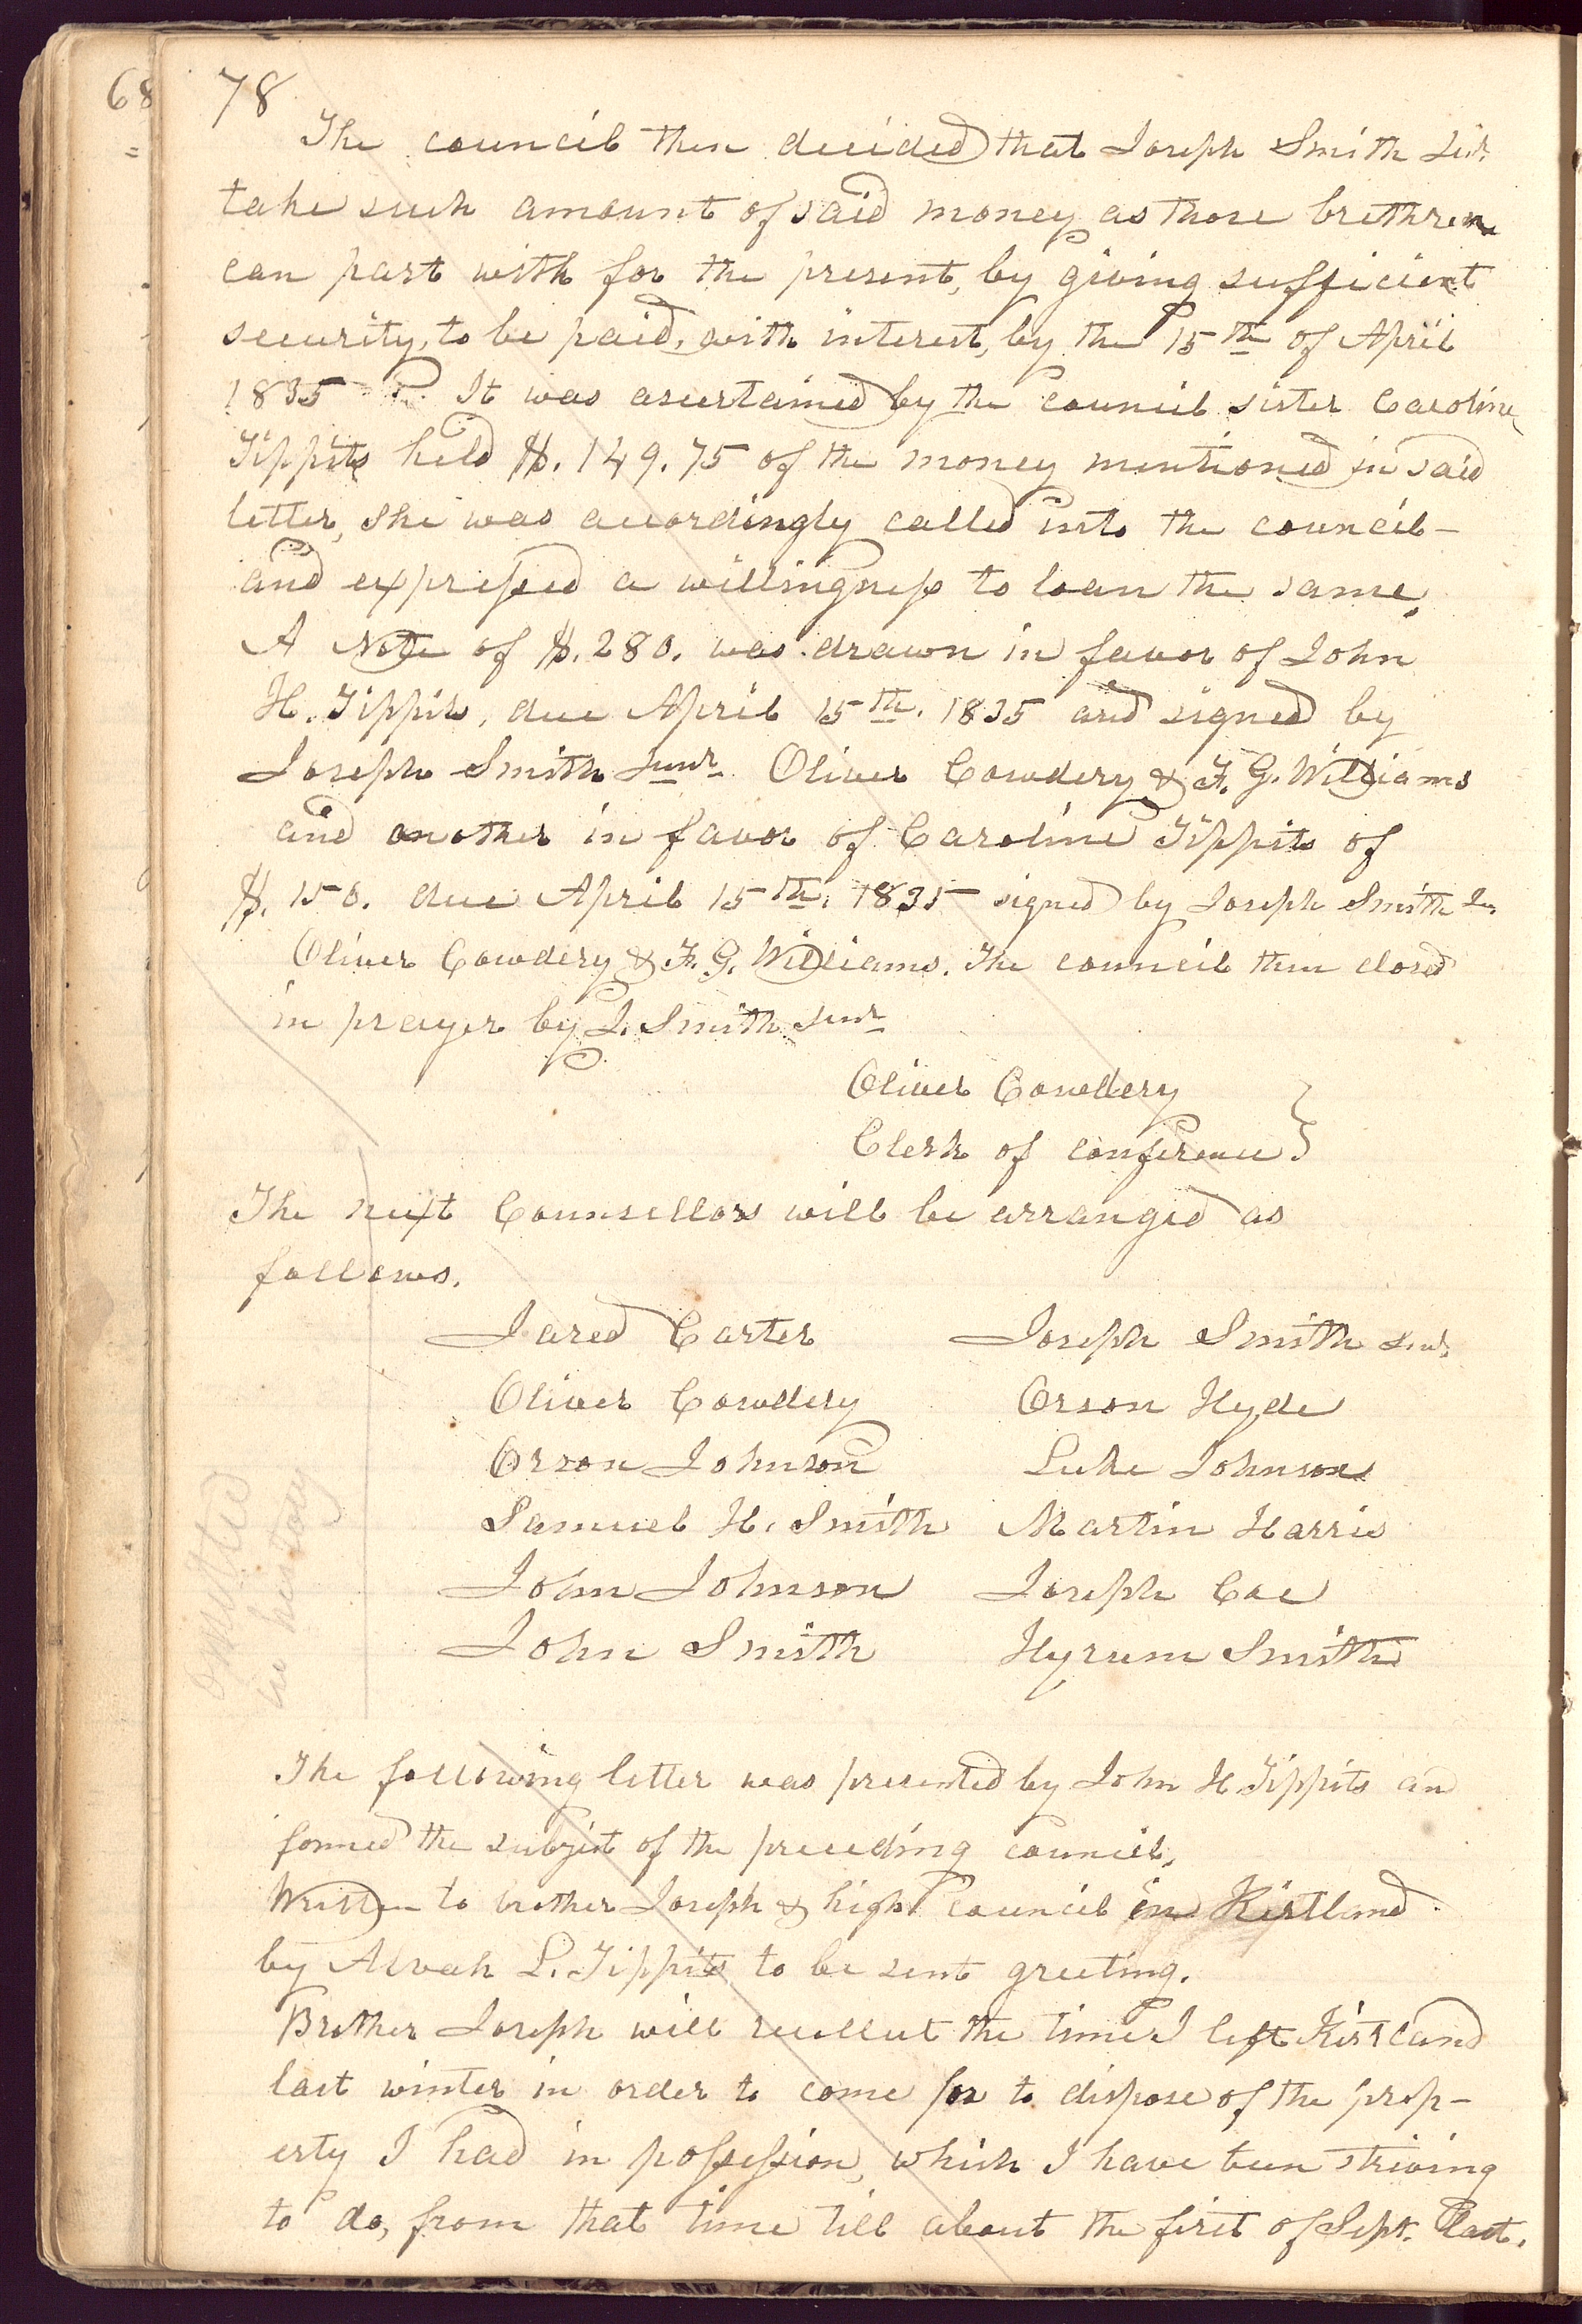 68
=
78
The council then decided that Joseph Smith Jun.
take such amount of said money as those brethren
can part with for the present, by giving sufficient
security, to be paid, with interest, by the 15th of April
1835. It was ascertained by the council sister Caroline
Tippits held $. 149.75 of the money mentioned in said
letter, she was accordingly called into the council—
and expressed a willingness to loan the same.
A Note of $. 280. was drawn in favor of John
H. Tippits, due April 15th. 1835 and signed by
Joseph Smith Junr. Oliver Cowdery & F. G. Williams
and another in favor of Caroline Tippits of
$. 150. due April 15th. 1835 signed by Joseph Smith Ju.
Oliver Cowdery & F. G. Williams. The council then closed
in prayer by J. Smith Junr
Oliver Cowdery
Clerk of conference }
The next Counsellors will be arranged as
follows.
Jared Carter Joseph Smith Sen.
Oliver Cowdery Orson Hyde
Orson Johnson Luke Johnson
Samuel H. Smith Martin Harris
John Johnson Joseph Coe
John Smith Hyrum Smith
Omitted
in history
The following letter was presented by John H Tippits and
formed the subject of the preceeding council.
Written to brother Joseph & high council in Kirtland
by Alvah L. Tippits to be sent greeting.
Brother Joseph will recollect the time I left Kirtland
last winter in order to come for to dispose of the prop-
erty I had in possession, which I have been striving
to do, from that time till about the first of Sept. last.